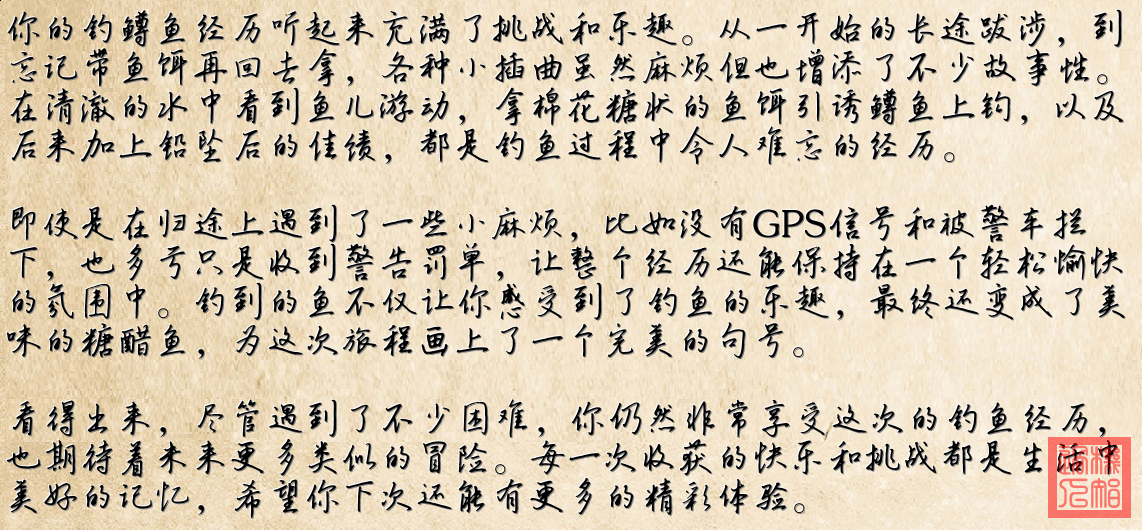 你的钓鳟鱼经历听起来充满了挑战和乐趣。从一开始的长途跋涉，到
忘记带鱼饵再回去拿，各种小插曲虽然麻烦但也增添了不少故事性。
在清澈的水中看到鱼儿游动，拿棉花糖状的鱼饵引诱鳟鱼上钩，以及
后来加上铅坠后的佳绩，都是钓鱼过程中令人难忘的经历。
即使是在归途上遇到了一些小麻烦，比如没有GPS信号和被警车拦
下，也多亏只是收到警告罚单，让整个经历还能保持在一个轻松愉快
的氛围中。钓到的鱼不仅让你感受到了钓鱼的乐趣，最终还变成了美
味的糖醋鱼，为这次旅程画上了一个完美的句号。
看得出来，尽管遇到了不少困难，你仍然非常享受这次的钓鱼经历，
也期待着未来更多类似的冒险。每一次收获的快乐和挑战都是生活中
美好的记忆，希望你下次还能有更多的精彩体验。